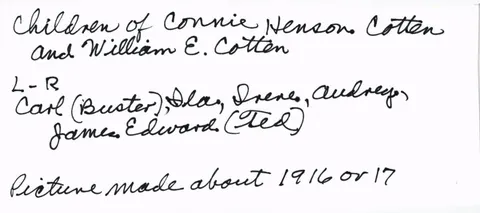 Children of Connie Henson Cotten
and William E. Cotten
L-R
Carl (Buster), Ila, Irene, Audrey,
James Edward (Ted)
Picture made about 1916 or 17